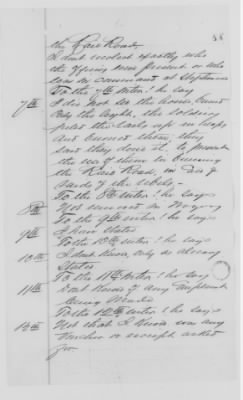 58
the Rail Road.
I dont recolect exactly who
the officers were present or who
was in command at
To the 7th inter: he say
7th
I did not see the house, burnt
Only the light, the soldiers
piled the rails up in heaps
and burned them, they
said they done it, to prevent
the use of them in
the Rail Road, in
of the rebels,-
To the 8th inter: he says
8th
Not present in
To the 9th inter: he says
9th
I have stated
To the 10th inter: he says
10th
I dont know, only as already
Stated
To the 11th inter: he say
11th
Dont know of any complaint
being made
To the 12th inter: he says
12th
Not that I know was any
voucher or receipt asked
for